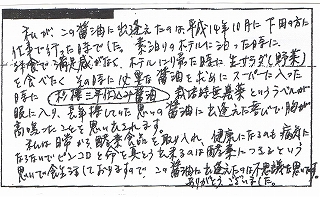 私が、この醤油に出逢えたのは平成14年10月に下田の方に
仕事で行った時でした。素泊りのホテルに泊った時に
外食で満足感がなく、ホテルに帰た時に生サラダ(野菜)
を食べたく、その時に必要な醤油を求めにスーパーに入った
時に 杉樽三年仕込み醤油 栽培時無農薬というラベルが
眼に入り、長年捜していた思いの醤油に出逢えた喜びで胸が
高鳴ったことを思い出されます。
私は日常から、酵素食品を取り入れ、健康になるのも病気に
なたないでピンコロと命を真とう出来るのは酵素につきるという
思いで食生活しておりますので、この醤油に出逢えたのは不思議な思いです。
ありがとうございました。